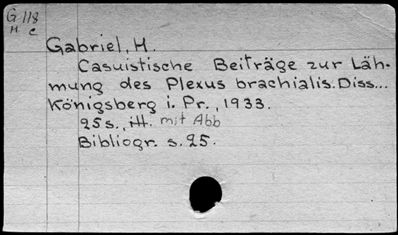 G 118
H c
Gabriel, H.
Casuistische Beiträge zur Läh-
mung des Plexus brachialis. Diss...
Königsberg i. Pr., 1933.
25 s., ill. mit Abb
Bibliogr. s. 25.